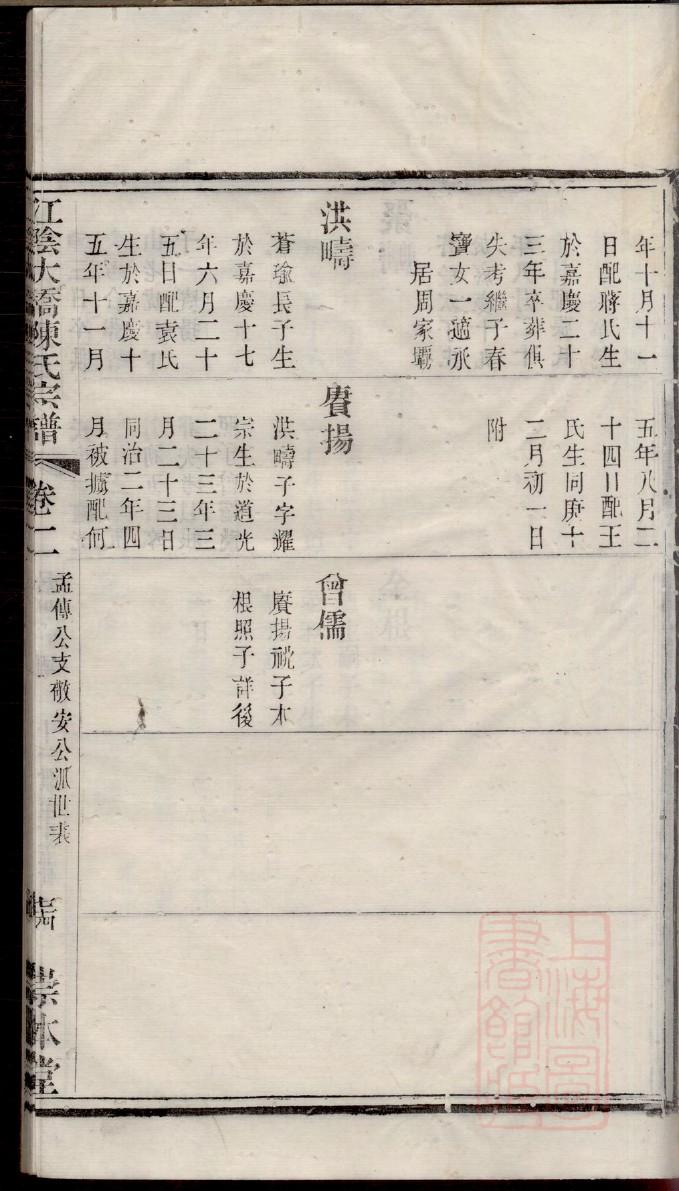 年十月十一
日配蔣氏生
於嘉慶二十
三年卒葬俱
失考繼子春
寶女一適承
居周家壩
洪疇
蒼瑜長子生
於嘉慶十七
年六月二十
五日配袁氏
生於嘉慶十
五年十一月
五年八月二
十四日配王
氏生同庚十
二月初一日
附
賡揚
洪疇子字耀
宗生於道光
二十三年三
月二十三日
同治二年四
月被擄配何
曾儒
賡揚祧子本
根照子詳後
江陰大橋陳氏宗譜
卷二
孟傳公支敬安公派世表
崇本堂
上海圖書館藏